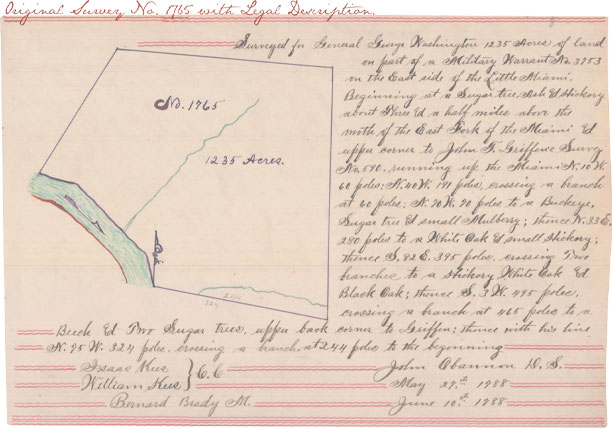 Original Survey No. 1765 with Legal Description.
Surveyed for General George Washington 1235 Acres of land
on part of a Military Warrant No. 3753
on the East side of the Little Miami.
Beginning at a Sugar tree Ash Ed Hickory
about Three Ed a half miles above the
moth of the East Fork of the Miami Ed
upper corner to John F. Griffins Survey
No. 590, running up the Miami N. 10 W.
60 poles; N. 40 W. 191 poles, crossing a branch
at 60 poles; N. 70 W. 90 poles to a Buckeye,
Sugar tree Ed small Mulberry; thence N. 33 E.
280 poles to a White Oak Ed small Hickory;
thence S. 82 E. 395 poles, crossing Two
branches to a Hickory White Oak Ed
Black Oak; thence S. 3 W. 495 poles,
crossing a branch at 465 poles to a
Beech Ed Two Sugar trees, upper back corner to Griffin; thence with his line
N. 75 W. 324 poles, crossing a branch at 244 poles to the beginning
No. 1765
1235 Acres.
244
324
Isaac
William
} C. C
Bernard Brady M.
John Obannon D. S.
May 27.th 1788
June 10.th 1788